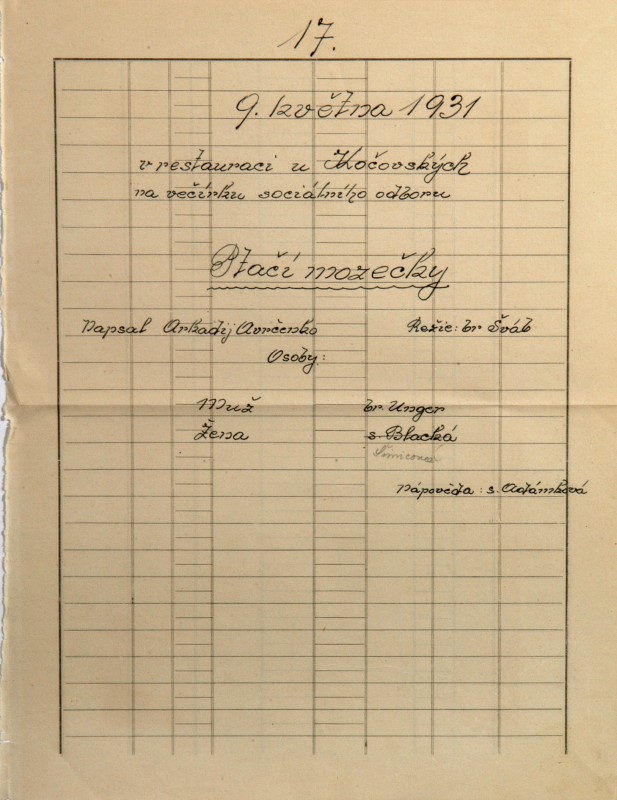 17.
9. května 1931
v restauraci u Kočovských
na večírku sociálního odboru
Ptačí mozečky
Napsal Arkadij Avrčenko Režie: br Šváb
Osoby:
Muž br. Unger
Žena s. Blacká
Nápověda: s. Adámková